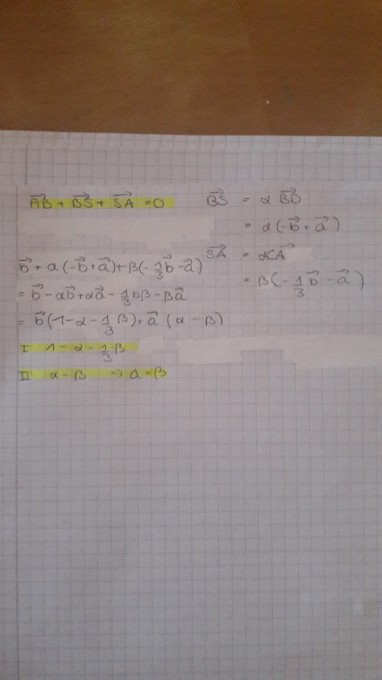 AB⃗ + BS⃗ + SA⃗ = 0
BS⃗ = α BD⃗
= α(-b⃗ + a⃗)
SA⃗ = αCA⃗
= β(-1/3 b⃗ - a⃗)
b⃗ + α(-b⃗+a⃗) + β(-1/3 b⃗ - a⃗)
= b⃗ - αb⃗ + αa⃗ - 1/3 bβ - βa⃗
= b⃗(1 - α - 1/3 β) + a⃗ (α - β)
I 1 - α - 1/3 β
II α - β ⇒ α = β